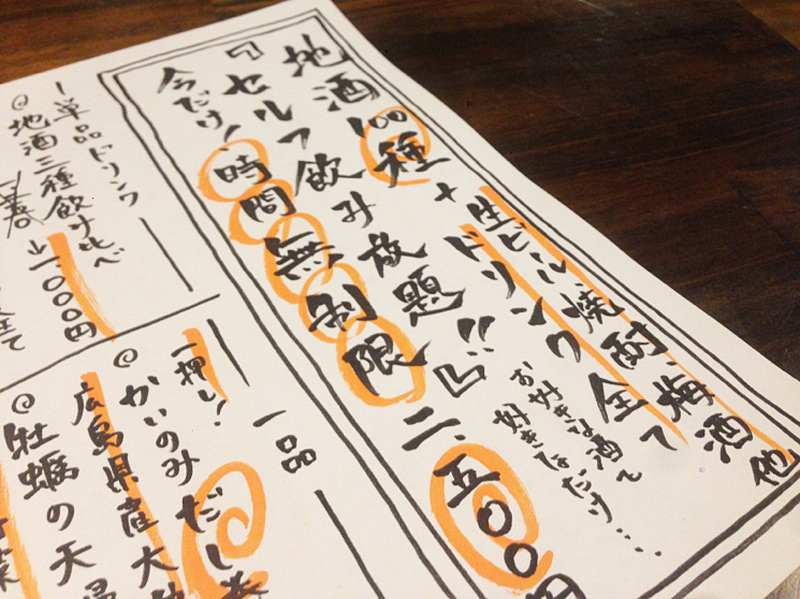 地酒100種+生ビール焼酎、梅酒他
ドリンク全て
『セルフ飲み放題!!』
お好きな酒を
好きなだけ・・・
今だけ!時間無制限
二、五〇〇円
単品ドリンク
地酒三種飲み比べ
一、〇〇〇円
全て
一品
一押し!
かいのみだし巻
広島県産大
牡蠣の天